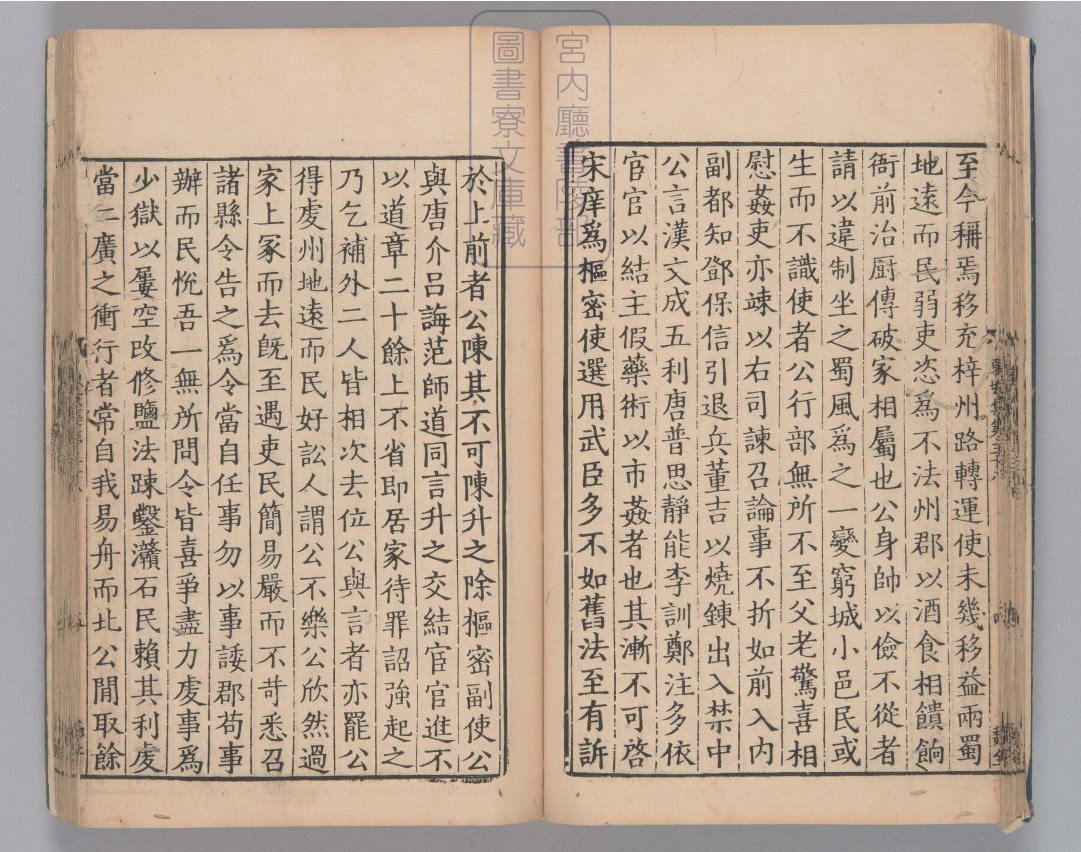 至今稱焉移充梓州路轉運使未幾移益兩蜀
地遠而民弱吏恣爲不法州郡以酒食相饋餉
衙前治厨傳破家相屬也公身帥以儉不從者
請以違制坐之蜀風爲之一變窮城小邑民或
生而不識使者公行部無所不至父老驚喜相
慰姦吏亦竦以右司諫召論事不折如前入内
副都知鄧保信引退兵董吉以燒鍊出入禁中
公言漢文成五利唐普思靜能李訓鄭注多依
宦官以結主假藥術以市姦者也其漸不可啓
宋庠爲樞密使選用武臣多不如舊法至有訴
於上前者公陳其不可陳升之除樞密副使公
與唐介吕誨范師道同言升之交結宦官進不
以道章二十餘上不省即居家待罪詔強起之
乃乞補外二人皆相次去位公與言者亦罷公
得虔州地遠而民好訟人謂公不樂公欣然過
家上冢而去旣至遇吏民簡易嚴而不苛悉召
諸縣令告之爲令當自任事勿以事諉郡苟事
辦而民悅吾一無所問令皆喜爭盡力虔事爲
少獄以屢空改修鹽法踈鑿灨石民賴其利虔
當二廣之衝行者常自我易舟而北公閒取餘
宮内廳書陵部
圖書寮文庫藏